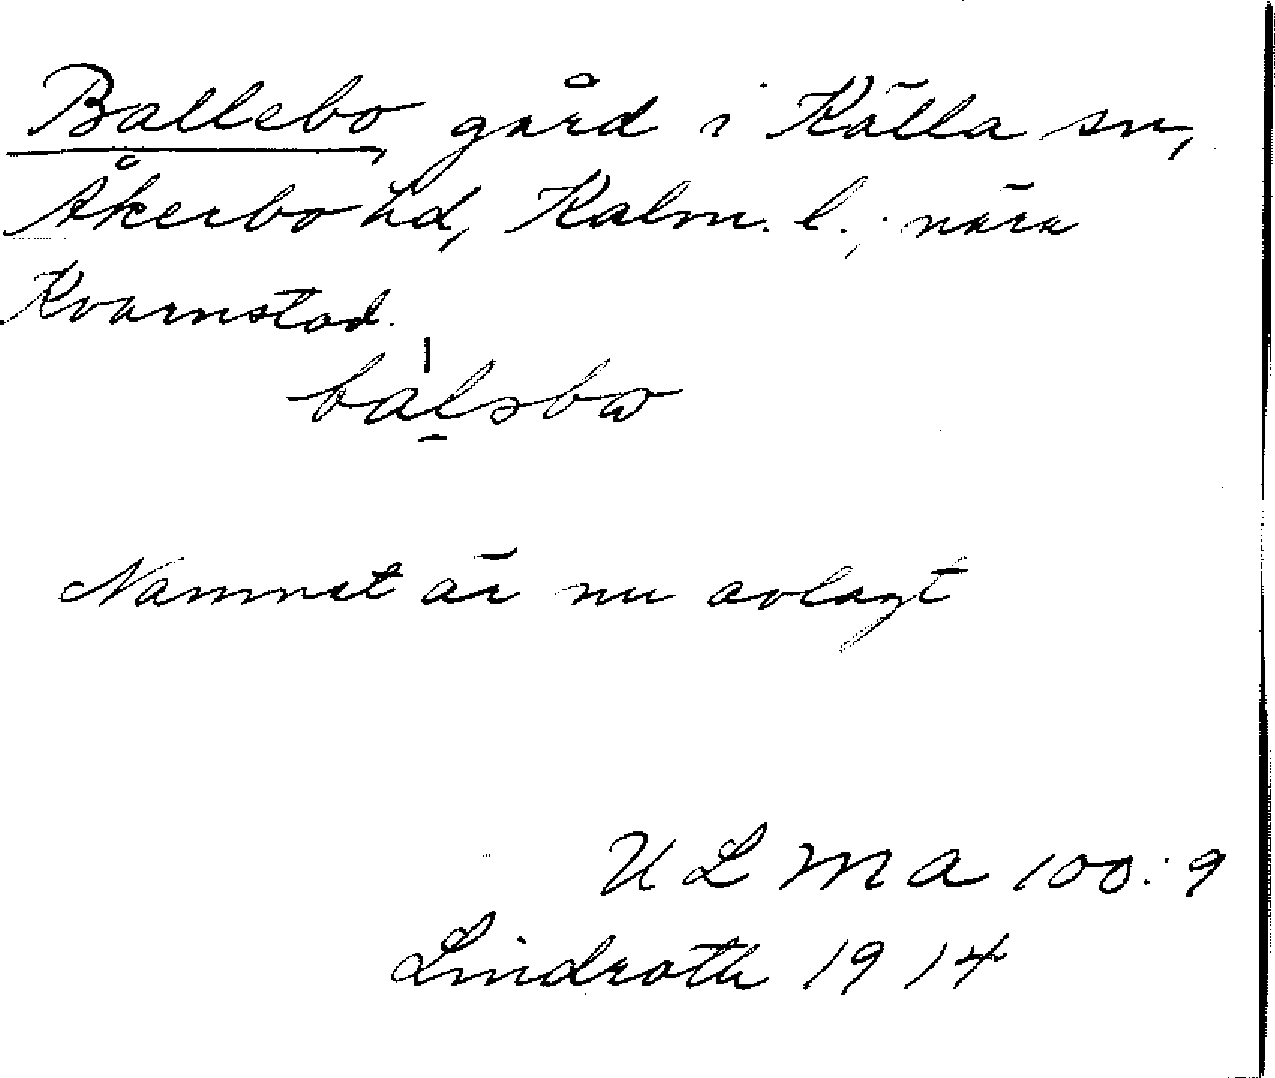 Ballebo, gård i Källa sn,
Åkerbo hd, Kalm. l.; nära
Kvarnstad.
Namnet är nu avlagt
ULMA 100:9
Lindroth 1914